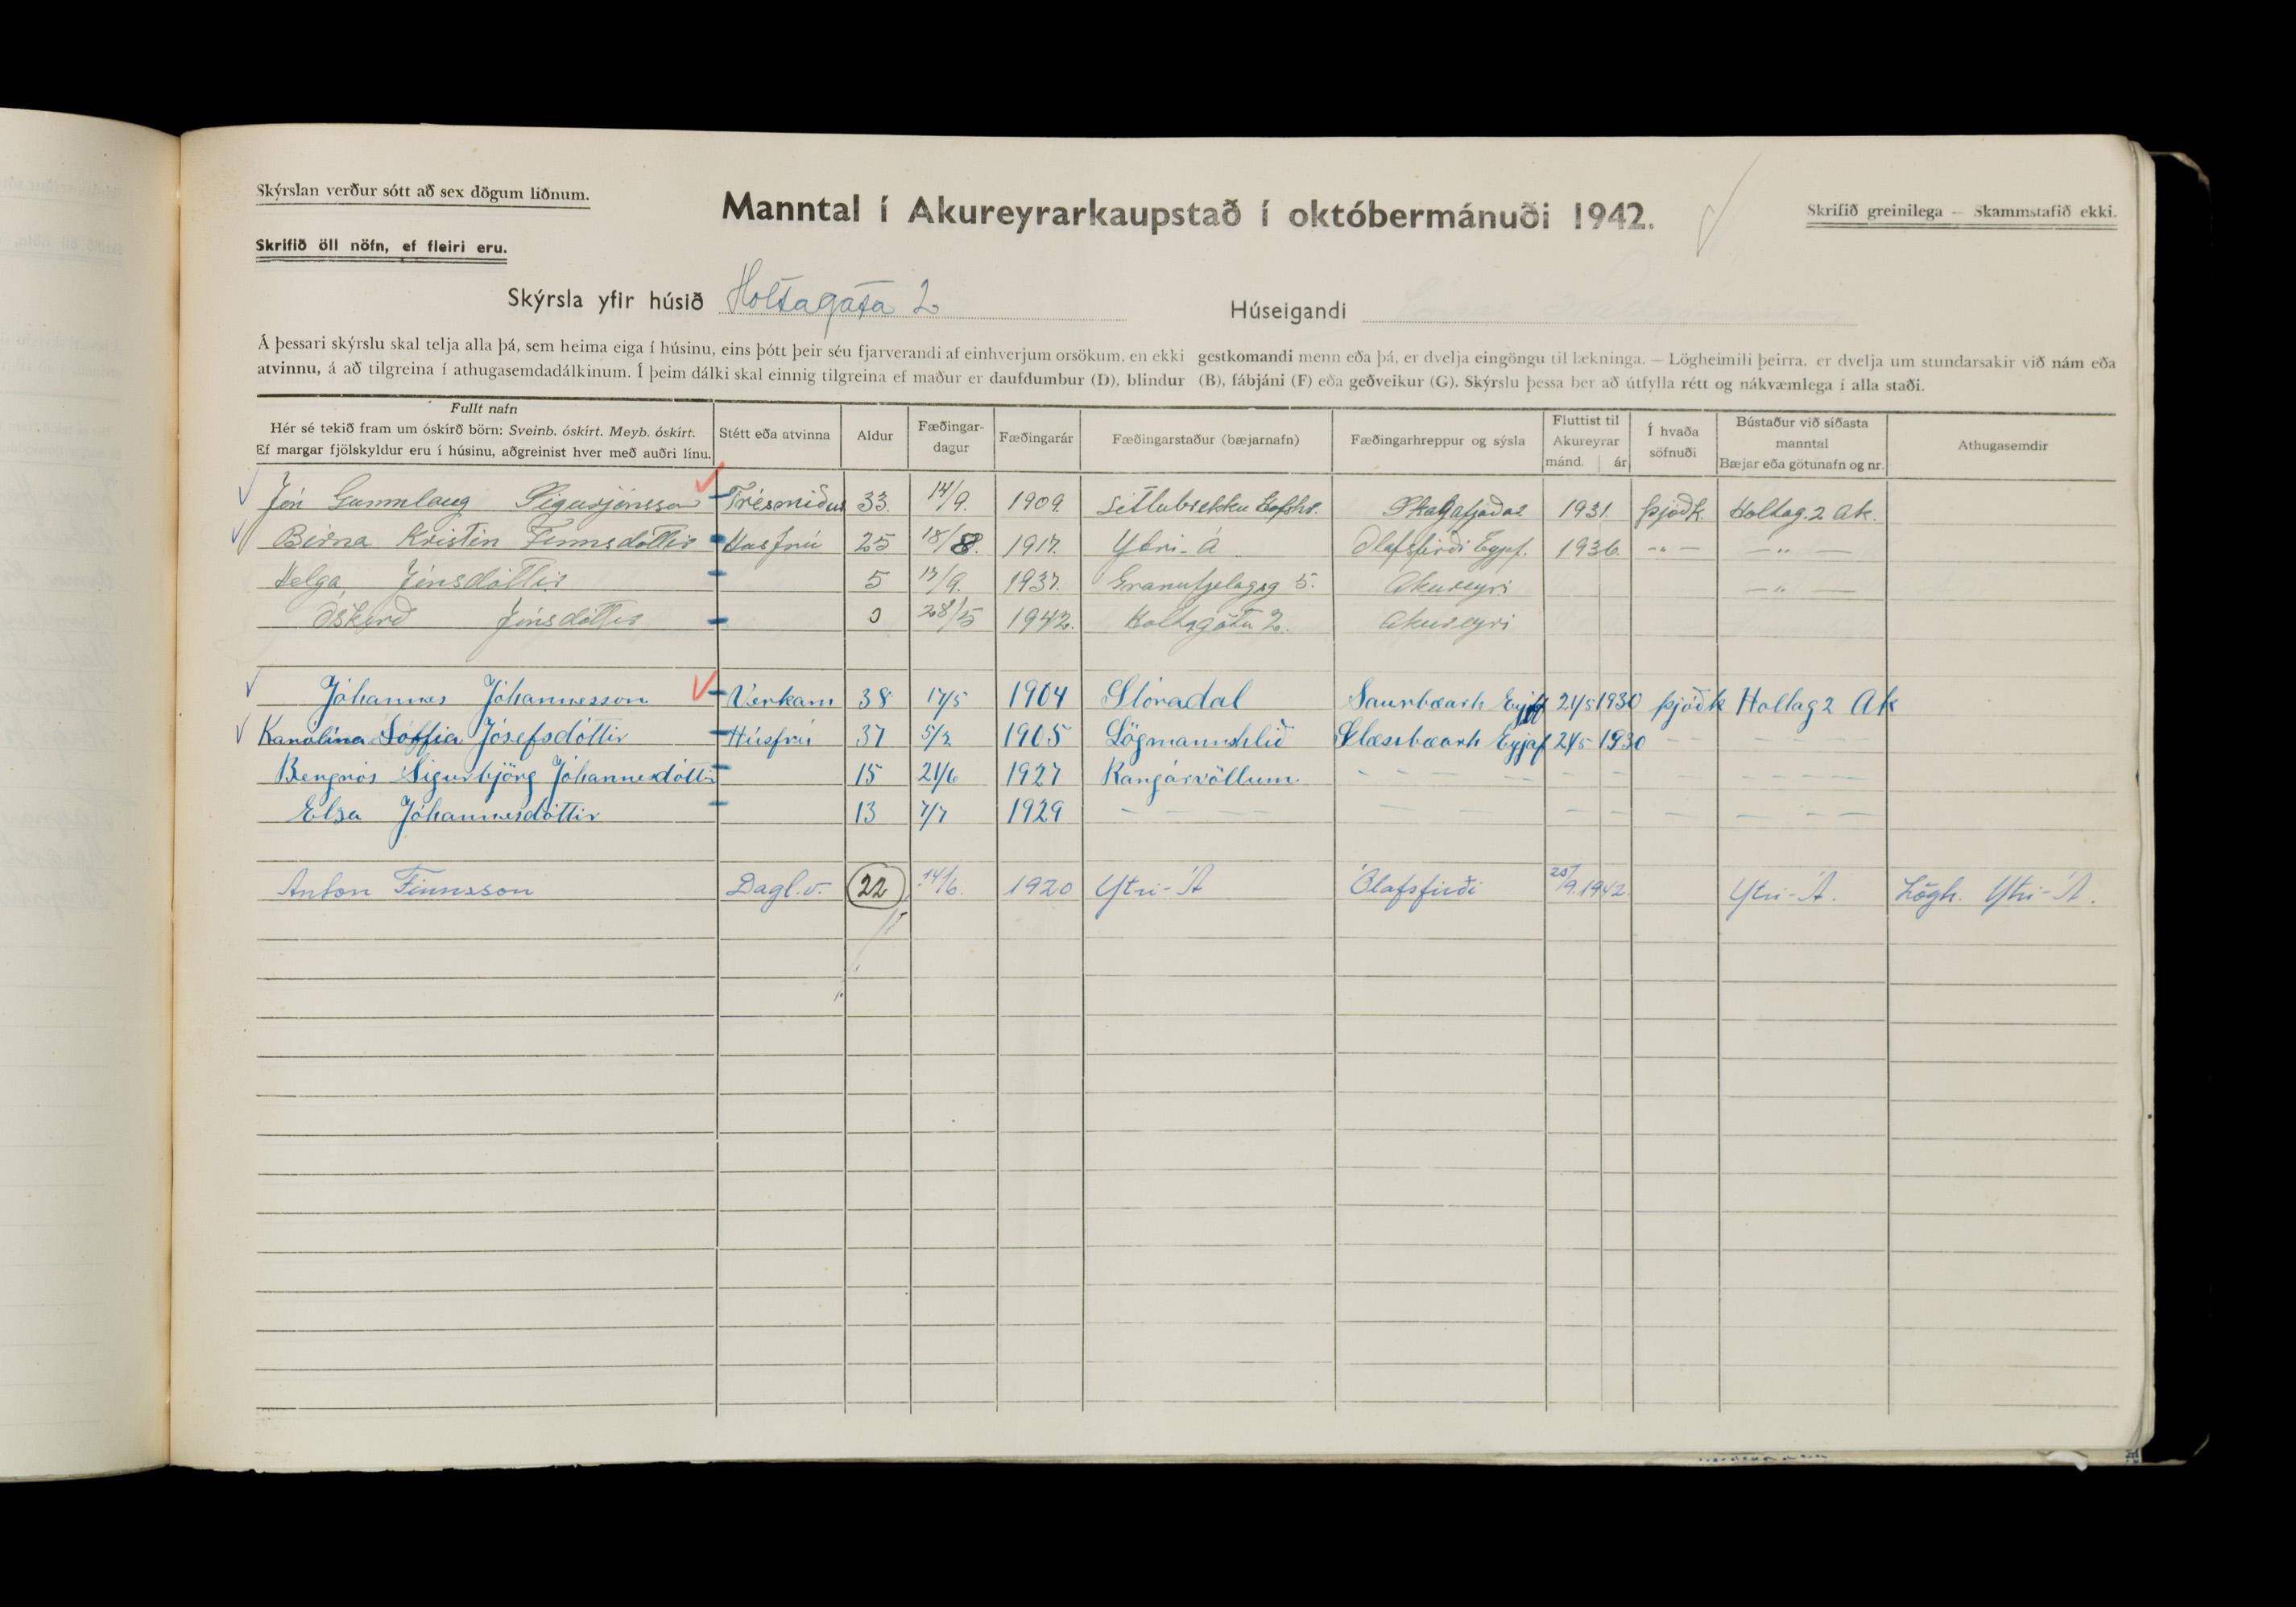 Skýrslan verður sótt að sex dögum liðnum.
Manntal í Akureyrarkaupstað í októbermánuði 1942.
Skrifið greinilega — Skammstafið ekki.
Skrifið öll nöfn, ef fleiri eru.
Skýrsla yfir húsið Holtagata 2 Húseigandi
Á þessari skýrslu skal telja alla þá, sem heima eiga í húsinu, eins þótt þeir séu fjarverandi af einhverjum orsökum, en ekki gestkomandi menn eða þá, er dvelja eingöngu til lækninga. — Lögheimili þeirra, er dvelja um stundarsakir við nám eða
atvinnu, á að tilgreina í athugasemdadálkinum. Í þeim dálki skal einnig tilgreina ef maður er daufdumbur (D), blindur (B), fábjáni (F) eða geðveikur (G). Skýrslu þessa ber að útfylla rétt og nákvæmlega í alla staði.
Fullt nafn
Hér sé tekið fram um óskírð börn: Sveinb. óskírt. Meyb. óskírt.
Ef margar fjölskyldur eru í húsinu, aðgreinist hver með auðri línu.
Stétt eða atvinna
Aldur
Fæðingar-
dagur
Fæðingarár
Fæðingarstaður (bæjarnafn)
Fæðingarhreppur og sýsla
Fluttist til
Akureyrar
mánd. ár
Í hvaða
söfnuði
Bústaður við síðasta
manntal
Bæjar eða götunafn og nr.
Athugasemdir
Jón Gunnlaug Sigurjónsson Trésmiður 33. 14/9. 1909. Litlubrekku Hofshr. Skagafjaðar 1931. þjóðk. Holtag. 2 Ak.
Birna Kristin Finnsdóttir Húsfrú 25 18/8. 1917. Ytri-Á Ólafsfirði Eyjf. 1936. -„- — „ —
Helga Jónsdóttir 5 17/9. 1937. Granufjelagsg 5. Akureyri — „ —
Óskírð Jónsdóttir 0 28/5 1942. Holtagötu 2. Akureyri
Jóhannes Jóhannesson Verkam 38 17/5 1904 Stóradal Saurbæarh Eyjf 21/5 1930 þjóðk Holtag 2 Ak
Karolína Soffia Jósefsdóttir Húsfrú 37 5/2 1905 Lögmannshlíð Glæsibæarh Eyjaf 21/5 1930 - - - - - -
Bergrós Sigurbjörg Jóhannesdóttir 15 21/6 1927 Kangárvöllum - - - - - - - - - - -
Elsa Jóhannesdóttir 13 7/7 1929 - - - - - - - - - - - - - -
Anton Finnsson Dagl.v. 22 14/6. 1920 Ytri-Á Ólafsfirði 25/9. 1942. Ytri-Á. Lögh. Ytri-Á.